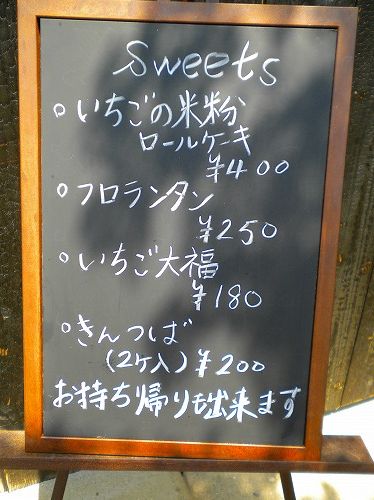 Sweets
○いちごの米粉
ロールケーキ
¥400
○フロランタン
¥250
○いちご大福
¥180
○きんつば
(2ケ入)¥200
お持ち帰りも出来ます